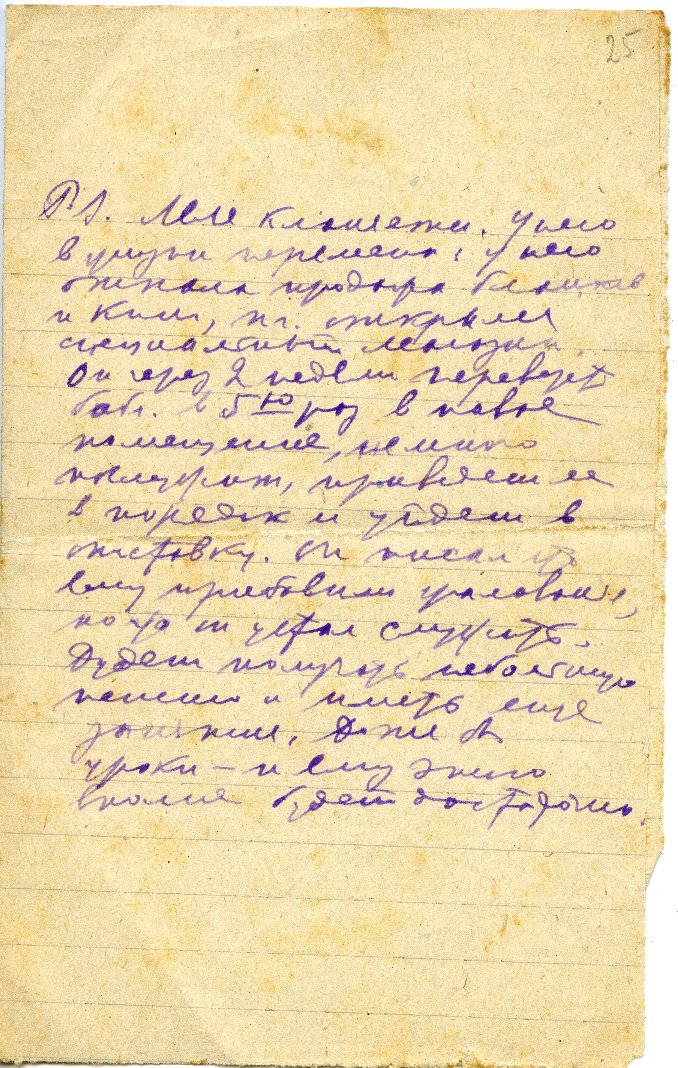 25
P.S. Леля кланяется. У него
в жизни перемена, у него
отняли продажу бланков
и книг, т.к. открыли
специальный магазин
Он через 2 недели перевезет
библ. в 5ый раз в новое
помещение, немного
приведет ее
в порядок и уйдет в
отставку. Он писал что
ему прибавили жалованье,
но что он устал служить.
Будет получать небольшую
пенсию и иметь еще
занятие, даже
уроки – и ему этого
вполне будет достаточно.